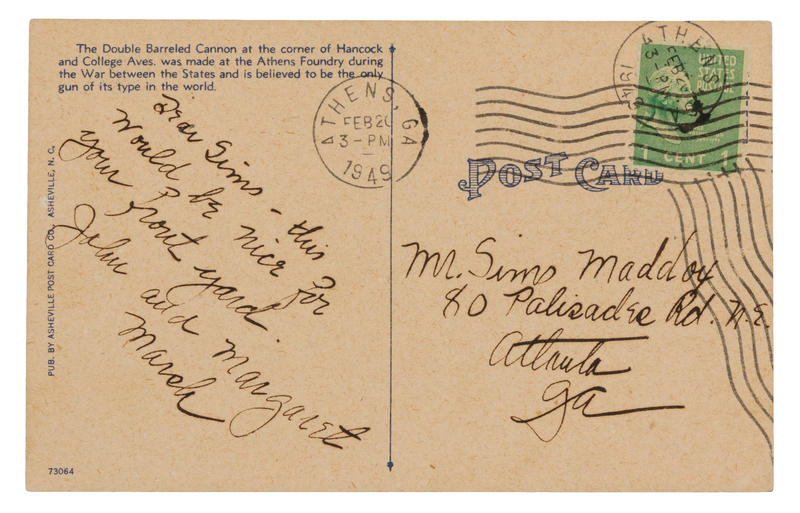 The Double Barreled Cannon at the corner of Hancock
and College Aves. was made at the Athens Foundry during
the War between the States and is believed to be the only
gun of its type in the world.
Dear Sims - this
would be nice for
your front yard.
John and Margaret
March
PUB. BY ASHEVILLE POST CARD CO., ASHEVILLE, N. C.
73064
ATHENS, GA
FEB 20
3-PM
1949
ATHENS
FEB 20
3-PM
1949
UNITED
STATES
POSTAGE
1 CENT 1
POST CARD
Mr. Sims Maddox
80 Palisades Rd. N.E.
Atlanta
Ga